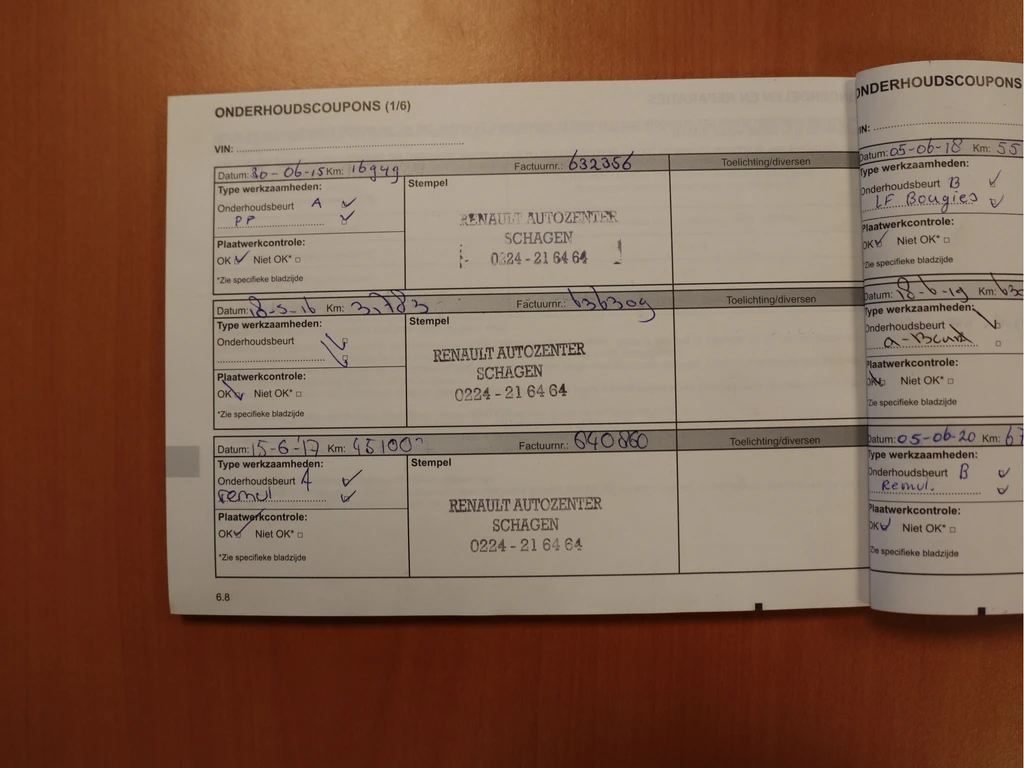 ONDERHOUDSCOUPONS (1/6)
VIN:
Datum: 30-06-15 Km: 16949 Factuurnr.: 632356 Toelichting/diversen
Type werkzaamheden: Stempel
Onderhoudsbeurt A
PP
Plaatwerkcontrole:
OK Niet OK*
*Zie specifieke bladzijde
RENAULT AUTOZENTER
SCHAGEN
0224-21 64 64
Datum: 18-5-16 Km: 31783 Factuurnr.: 636309 Toelichting/diversen
Type werkzaamheden: Stempel
Onderhoudsbeurt
Plaatwerkcontrole:
OK Niet OK*
*Zie specifieke bladzijde
RENAULT AUTOZENTER
SCHAGEN
0224-21 64 64
Datum: 15-6-17 Km: 45100 Factuurnr.: 640860 Toelichting/diversen
Type werkzaamheden: Stempel
Onderhoudsbeurt A
remvl
Plaatwerkcontrole:
OK Niet OK*
*Zie specifieke bladzijde
RENAULT AUTOZENTER
SCHAGEN
0224-21 64 64
6.8
ONDERHOUDSCOUPONS
VIN:
Datum: 05-06-18 Km: 55
Type werkzaamheden:
Onderhoudsbeurt B
LF Bougies
Plaatwerkcontrole:
OK Niet OK*
*Zie specifieke bladzijde
Datum: 18-6-19 Km: 63
Type werkzaamheden:
Onderhoudsbeurt
a-Beurt
Plaatwerkcontrole:
OK Niet OK*
*Zie specifieke bladzijde
Datum: 05-06-20 Km: 67
Type werkzaamheden:
Onderhoudsbeurt B
Remvl.
Plaatwerkcontrole:
OK Niet OK*
*Zie specifieke bladzijde